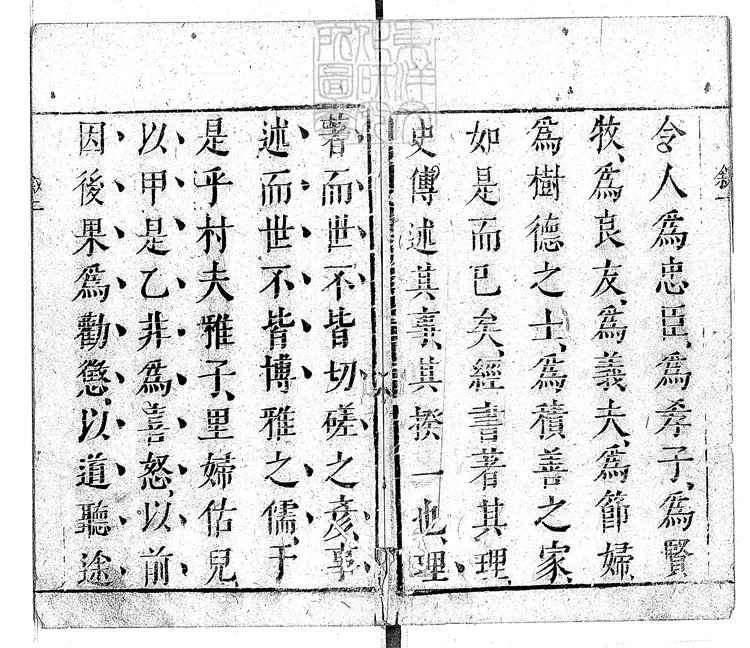 令人爲忠臣、爲孝子、爲賢
牧、爲良友、爲義夫、爲節婦、
爲樹德之士、爲積善之家、
如是而已矣、經書著其理、
史傳述其事、其揆一也、理
著而世不皆切磋之彦、事
述而世不皆博雅之儒、于
是乎村夫稚子、里婦估兒、
以甲是乙非爲喜怒、以前
因後果爲勸懲、以道聽途
叙一